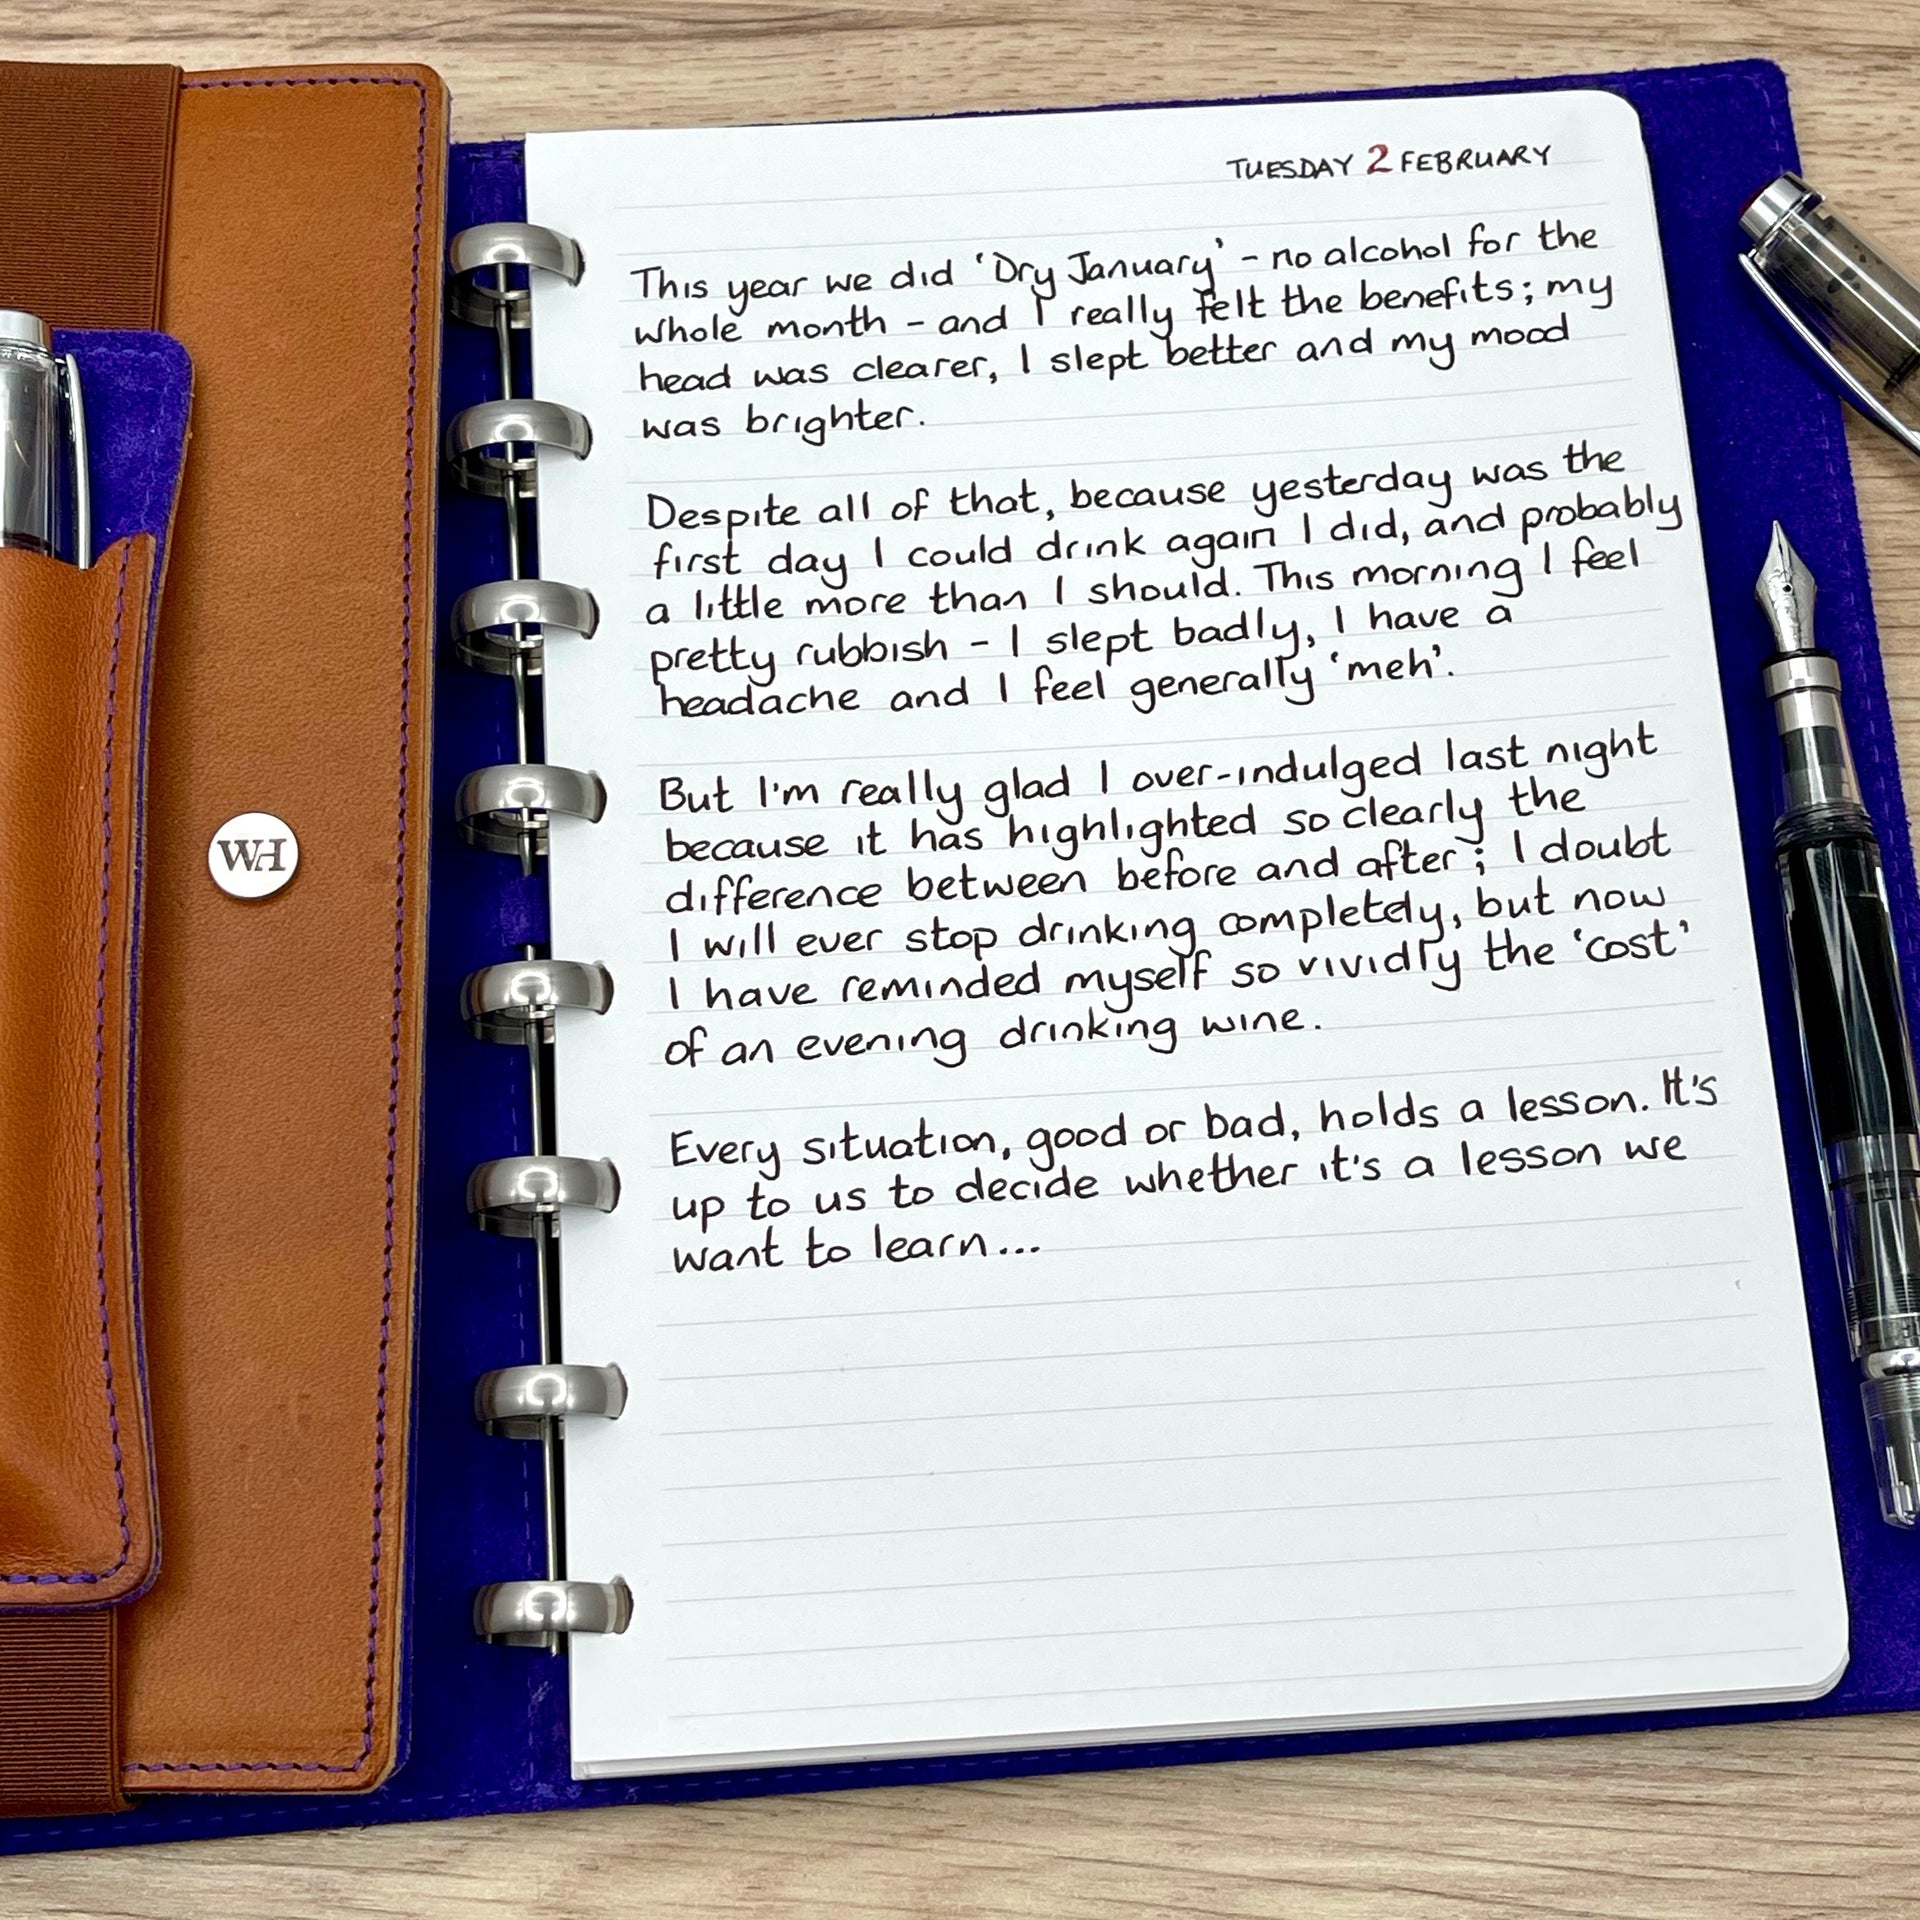 WH
TUESDAY 2 FEBRUARY
This year we did 'Dry January' - no alcohol for the
whole month - and I really felt the benefits; my
head was clearer, I slept better and my mood
was brighter.
Despite all of that, because yesterday was the
first day I could drink again I did, and probably
a little more than I should. This morning I feel
pretty rubbish - I slept badly, I have a
headache and I feel generally 'meh'.
But I'm really glad I over-indulged last night
because it has highlighted so clearly the
difference between before and after; I doubt
I will ever stop drinking completely, but now
I have reminded myself so vividly the 'cost'
of an evening drinking wine.
Every situation, good or bad, holds a lesson. It's
up to us to decide whether it's a lesson we
want to learn...